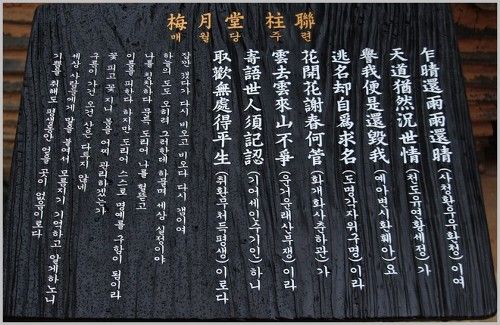 梅月堂 柱聯
매월당 주련
乍晴還雨雨還晴(사청환우우환청)이여
天道猶然況世情(천도유연황세정)가
譽我便是還毀我(예아변시환훼아)요
逃名却自爲求名(도명각자위구명)이라
花開花謝春何管(화개화사춘하관)가
雲去雲來山不爭(운거운래산부쟁)이라
寄語世人須記認(기어세인수기인)하니
取歡無處得平生(취환무처득평생)이로다
잠깐 갰다가 다시 비오고 비오다 다시 갬이여
하늘의 도도 오히려 그러한데 하물며 세상 실정이야
나를 칭찬하다 문득 도리어 나를 헐뜯고
이름을 피한다 하지만 도리어 스스로 명예를 구함이 됨이라
꽃 피고 꽃 지나 봄을 어찌 관리하겠는가
구름이 가건 오건 산은 다투지 않네
세상 사람들에게 말을 붙여서 모름지기 기억하고 알게하노니
기쁨을 취해도 평생동안 얻을 곳이 없음이로다